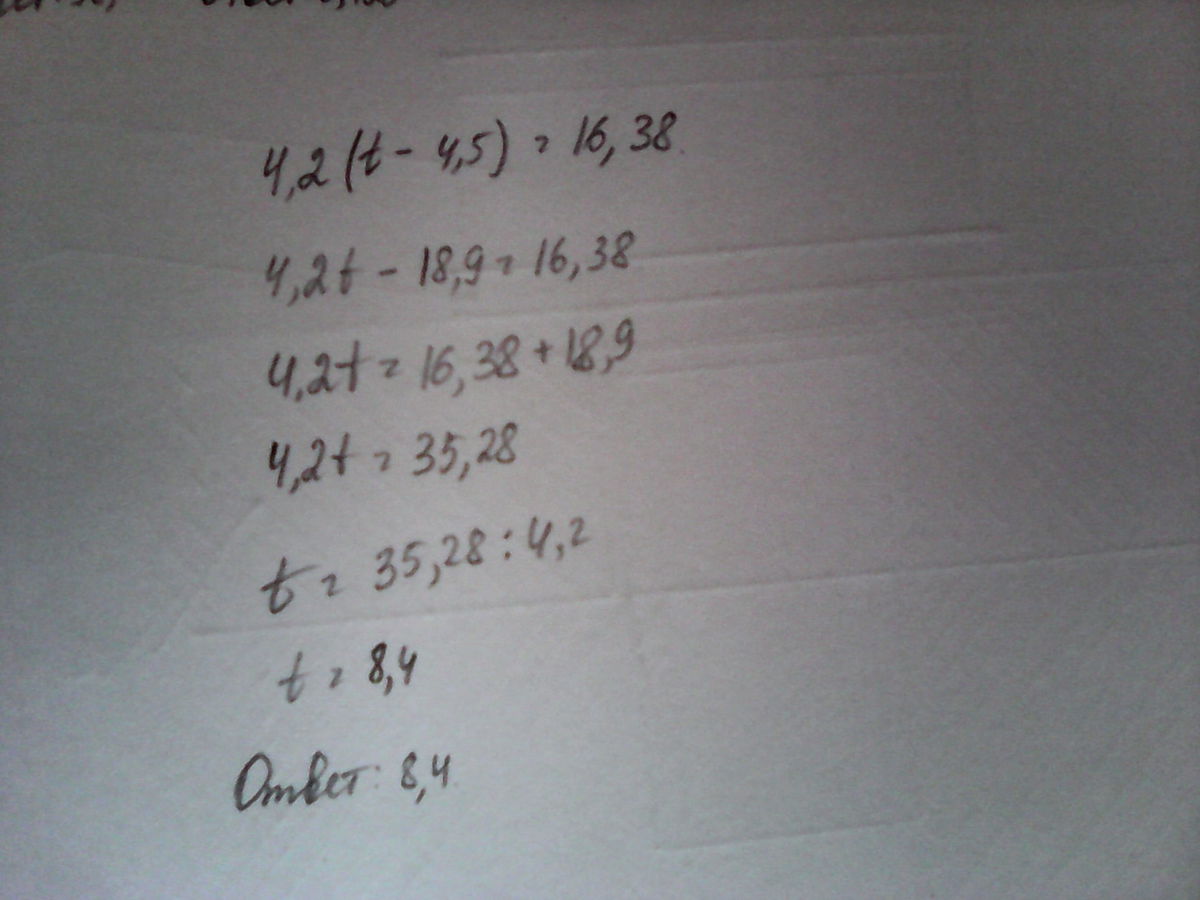 4,2(t - 4,5) = 16,38
4,2t - 18,9 = 16,38
4,2t = 16,38 + 18,9
4,2t = 35,28
t = 35,28 : 4,2
t = 8,4
Ответ: 8,4